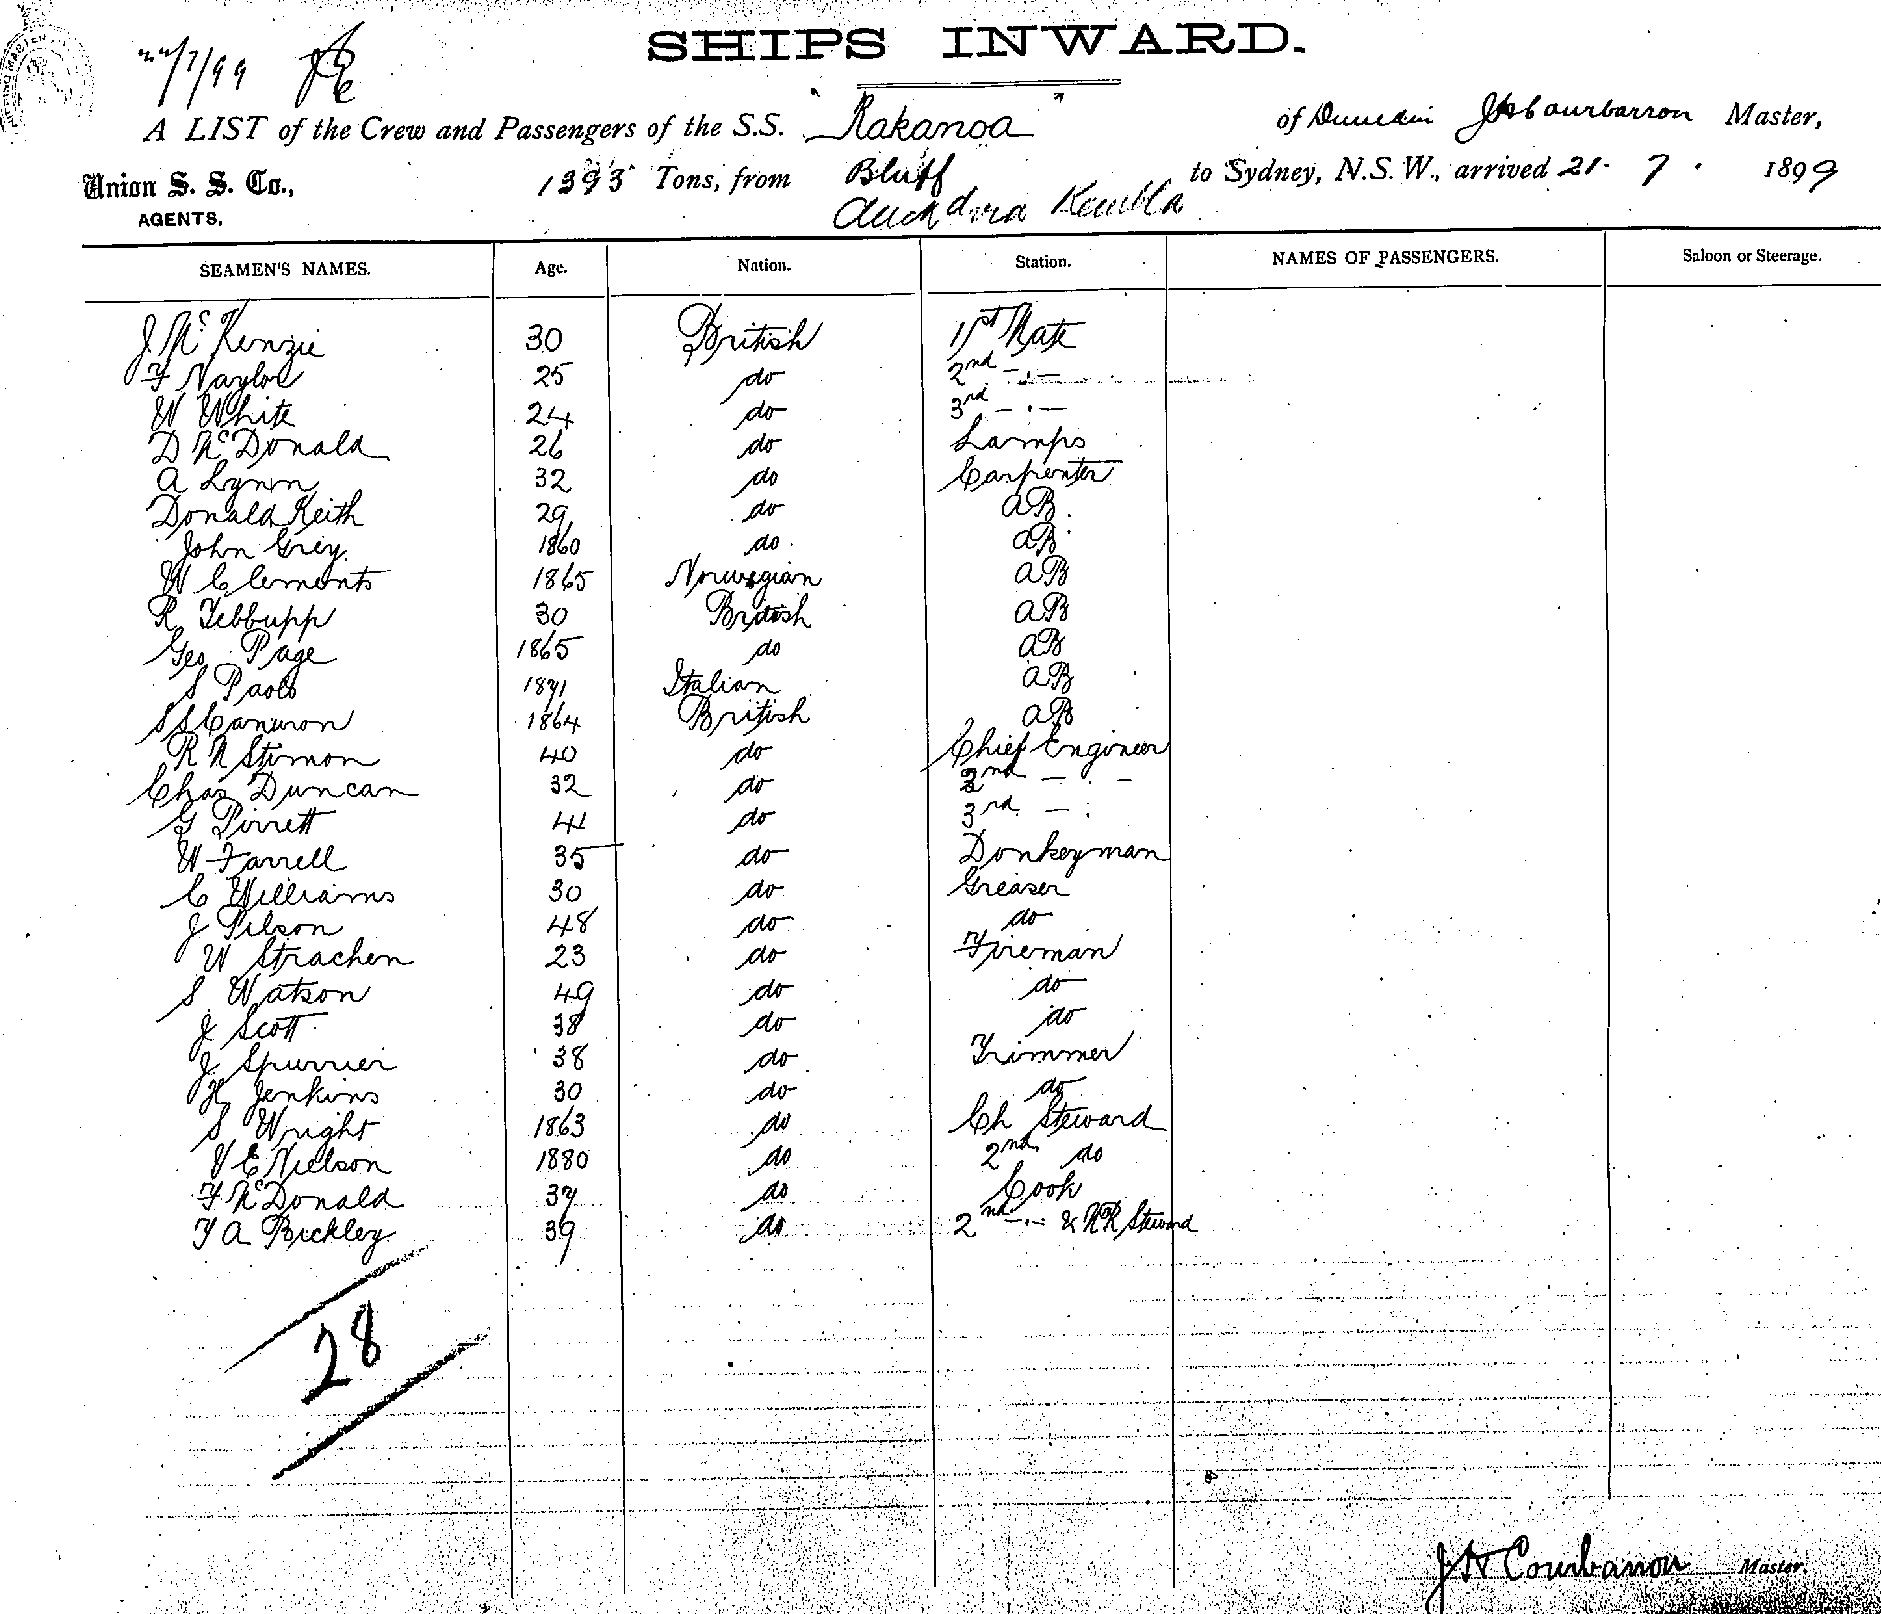 22/7/99
SHIPS INWARD.
A LIST of the Crew and Passengers of the S.S. Rakanoa of Dunedin Master,
Union S. S. Co., 1393 Tons, from Bluff to Sydney, N.S.W., arrived 21. 7. 1899
AGENTS, Auckd via Kembla
SEAMEN'S NAMES. Age. Nation. Station. NAMES OF PASSENGERS. Saloon or Steerage.
J. McKenzie 30 British 1st Mate
F Naylor 25 do 2nd -.-
W White 24 do 3rd -.-
D McDonald 26 do Lamps
A Lynn 32 do Carpenter
Donald Keith 29 do AB.
John Grey. 1860 do. AB.
W Clements 1865 Norwegian AB
R Tebbupp 30 British AB
Geo Page 1865 do AB
S Paolo 1871 Italian AB
Cameron 1864 British AB
R N Stimon 40 do Chief Engineer
Chas Duncan 32 do 2nd - . -
G Pirrett 41 do 3rd - .
W Farrell 35 do Donkeyman
C Williams 30 do Greaser
J Pilson 48 do do
W Strachen 23 do Fireman
S Watson 49 do do
J Scott 38 do do
J Spurrier 38 do Trimmer
H Jenkins 30 do do
S Wright 1863 do Ch Steward
V E Nielson 1880 do 2nd do
F McDonald 37 do Cook
T A Bickley 39 do 2nd -.- & Steward
28
Master.